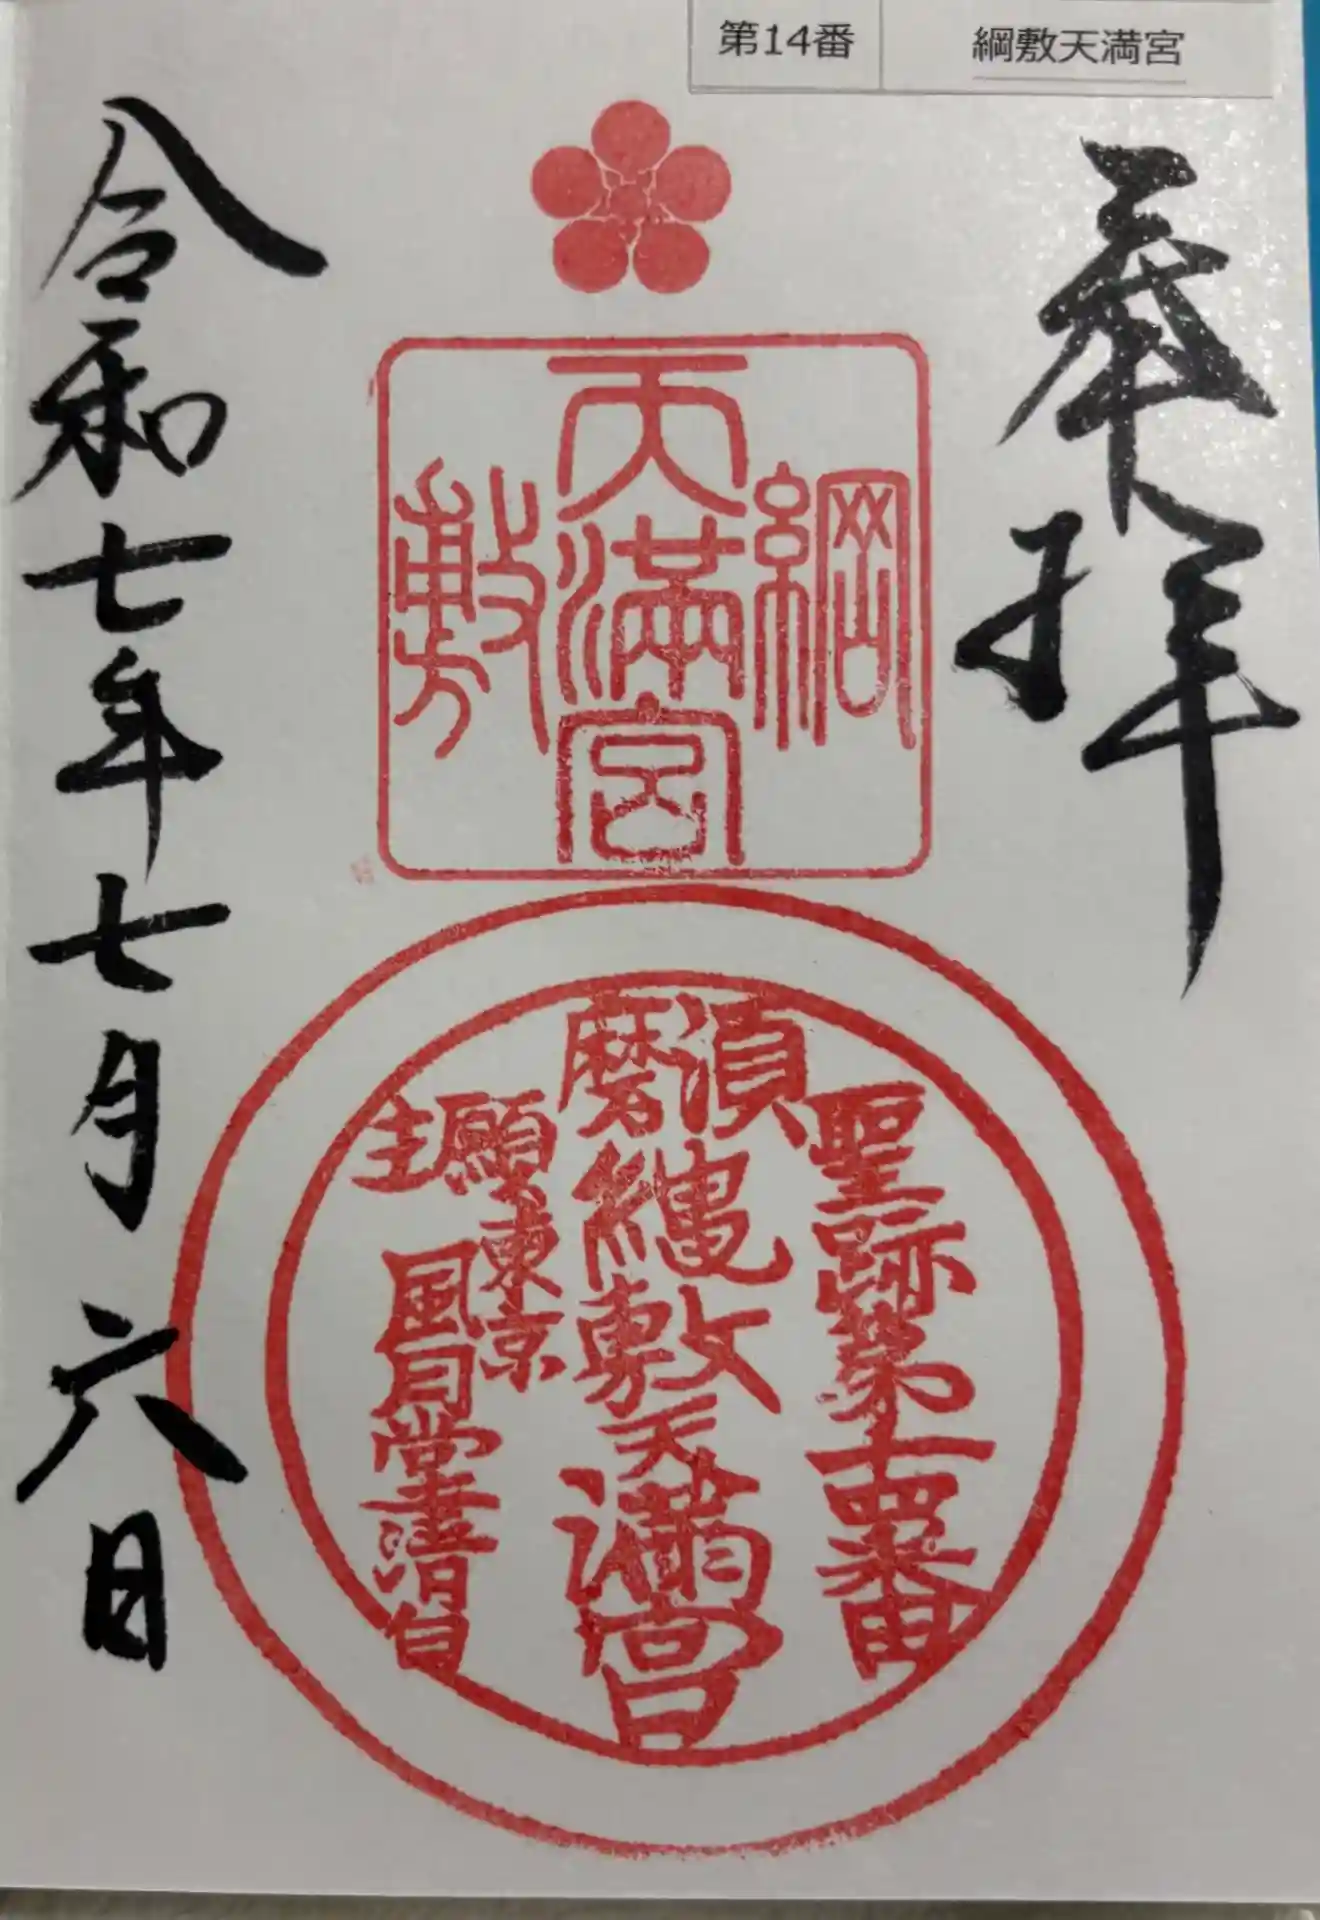 第14番 綱敷天満宮
奉拝
綱敷
天満宮
聖跡第十四番
須磨
縄敷天満宮
願主
東京
風月堂
敬白
令和七年七月六日